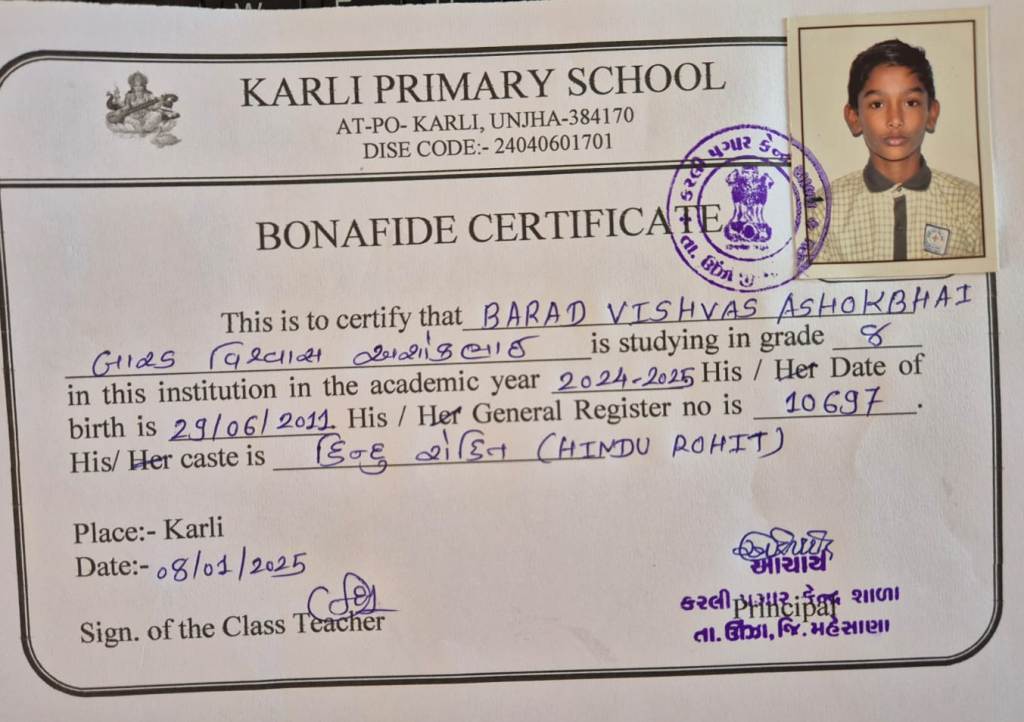 KARLI PRIMARY SCHOOL
AT-PO- KARLI, UNJHA-384170
DISE CODE:- 24040601701
કરલી પગાર કેન્દ્ર
તા. ઊંઝા
BONAFIDE CERTIFICATE
This is to certify that BARAD VISHVAS ASHOKBHAI
બારડ વિશ્વાસ અશોકભાઈ is studying in grade 8
in this institution in the academic year 2024-2025 His / Her Date of
birth is 29/06/2011 His / Her General Register no is 10697.
His/ Her caste is હિન્દુ રોહિત (HINDU ROHIT)
Place:- Karli
Date:- 08/01/2025
Sign. of the Class Teacher
આચાર્ય
કરલી પગાર કેન્દ્ર શાળા
Principal
તા. ઊંઝા, જિ. મહેસાણા